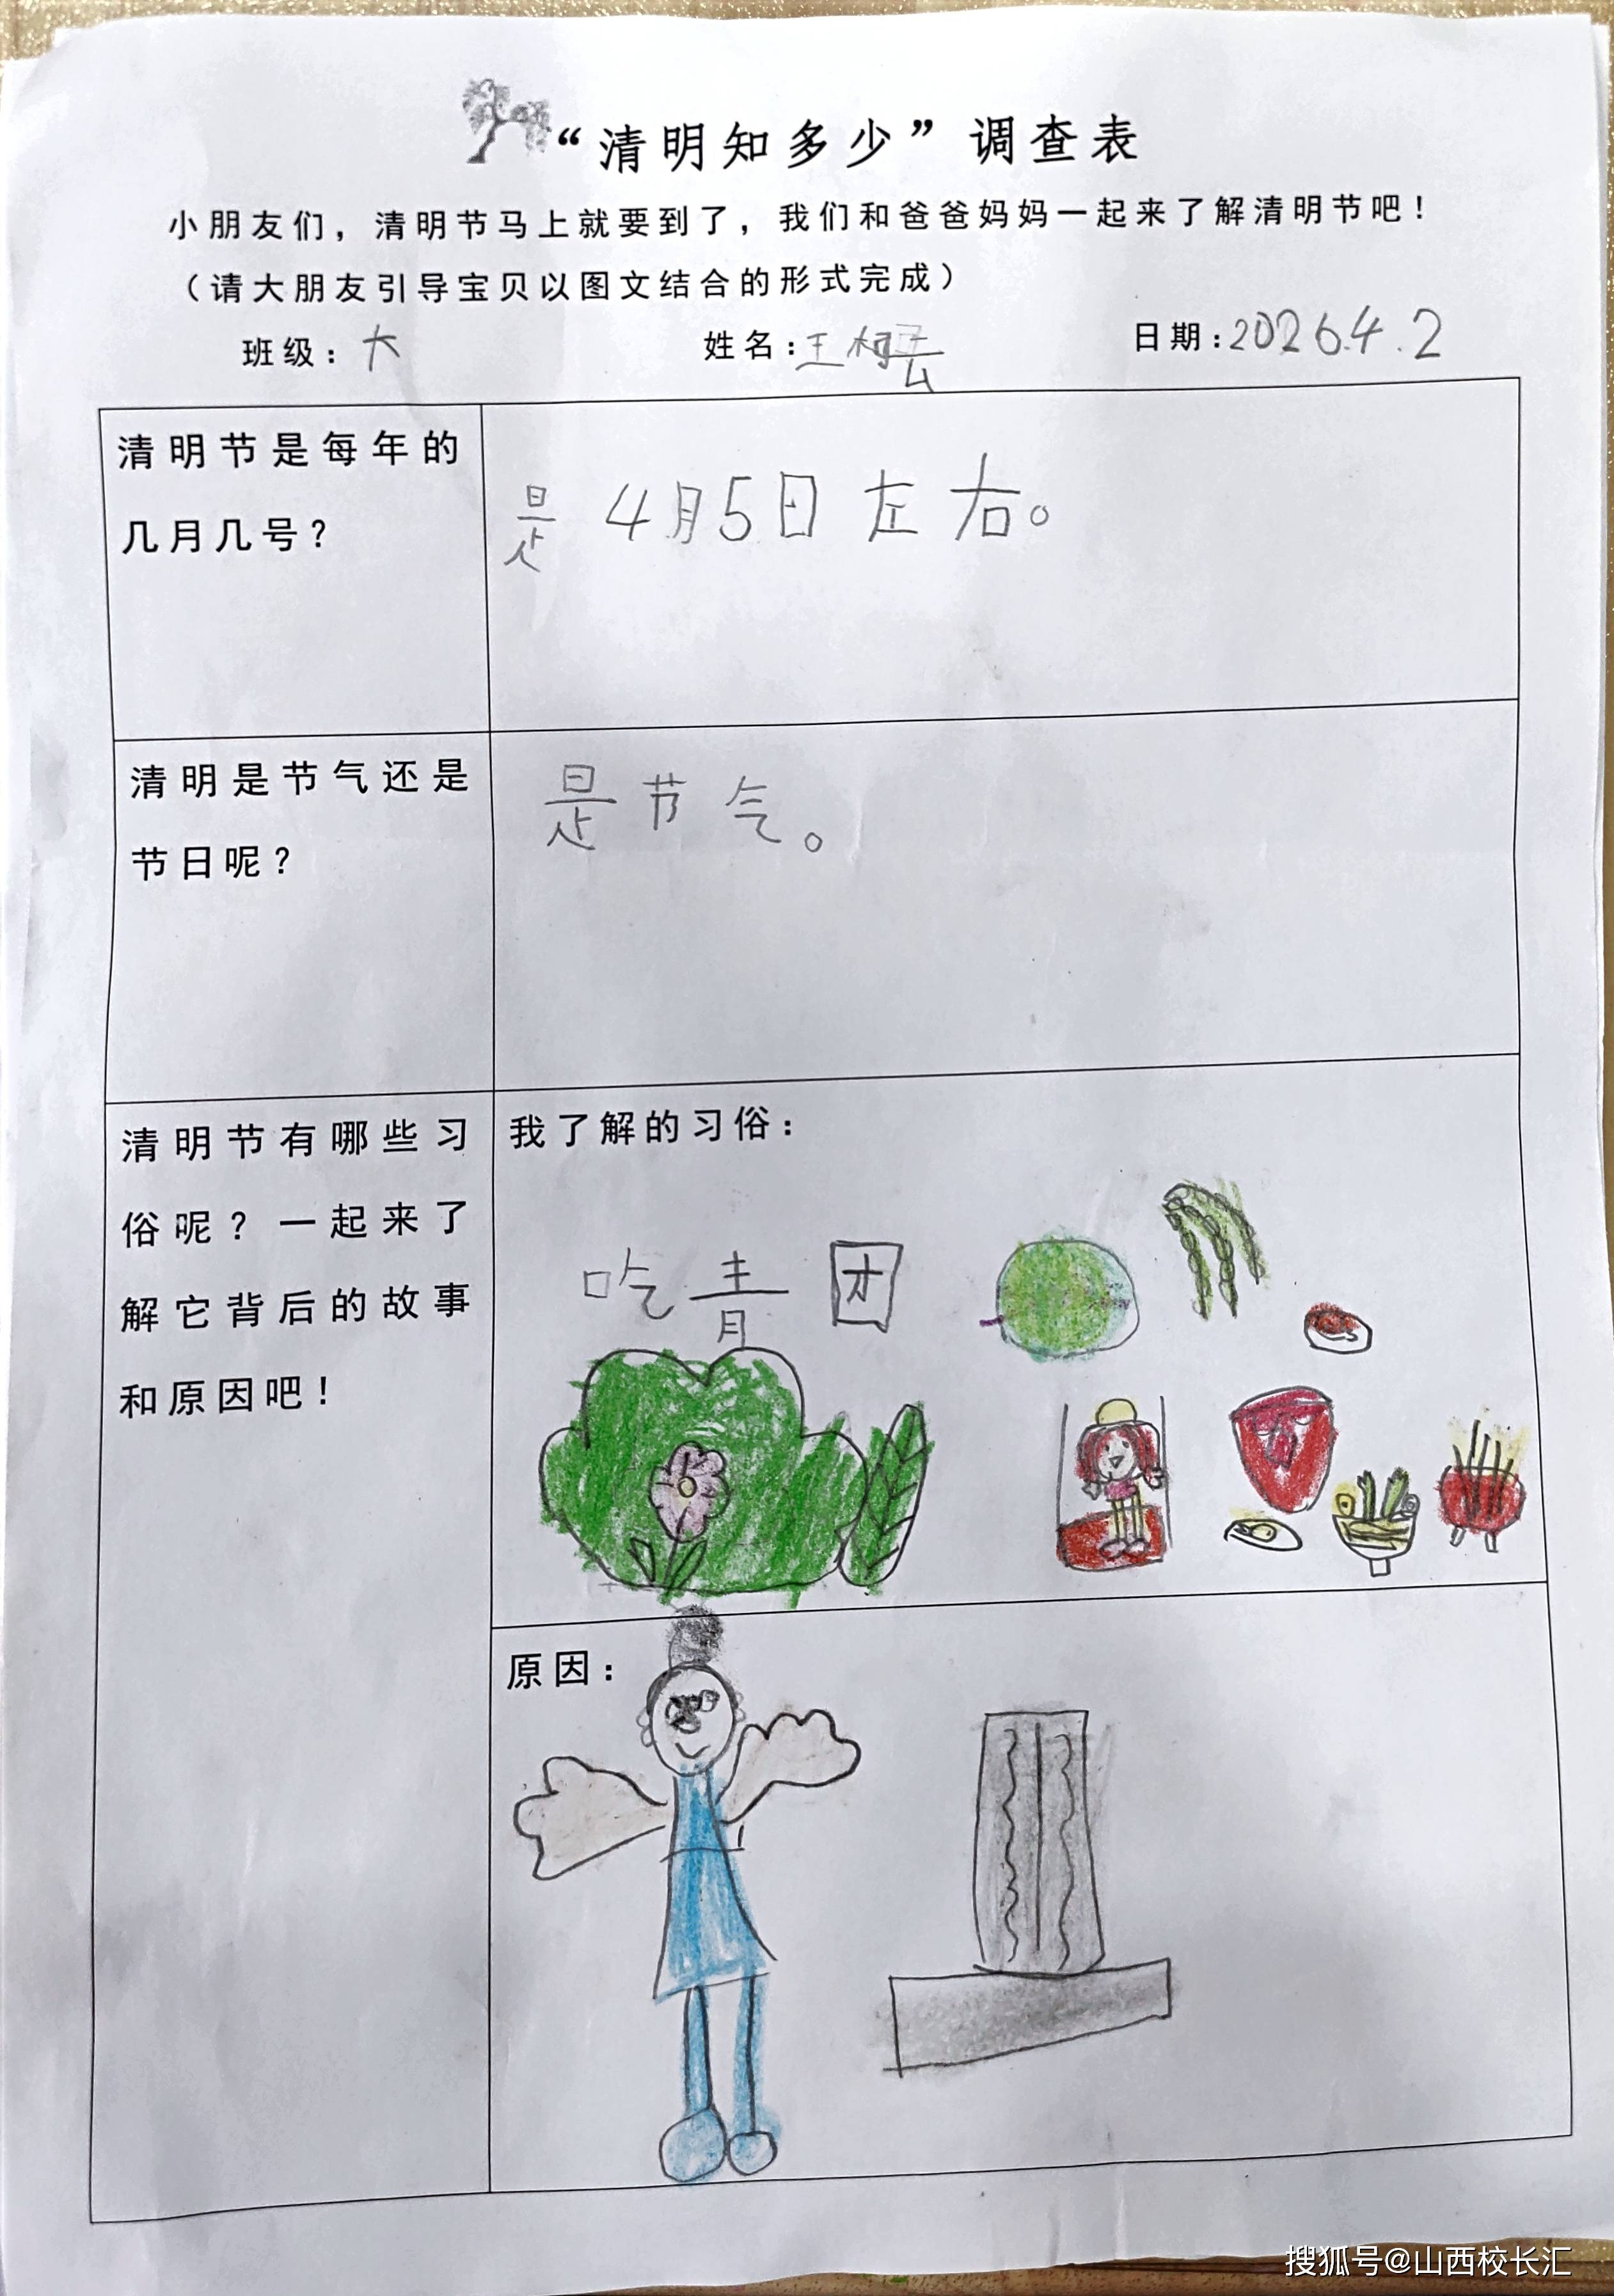 “清明知多少”调查表
小朋友们，清明节马上就要到了，我们和爸爸妈妈一起来了解清明节吧！
（请大朋友引导宝贝以图文结合的形式完成）
班级：大 姓名：王柯云 日期：2026.4.2
清明节是每年的
几月几号？
是4月5日左右。
清明是节气还是
节日呢？
是节气。
清明节有哪些习
俗呢？一起来了
解它背后的故事
和原因吧！
我了解的习俗：
吃青团
原因：
搜狐号@山西校长汇